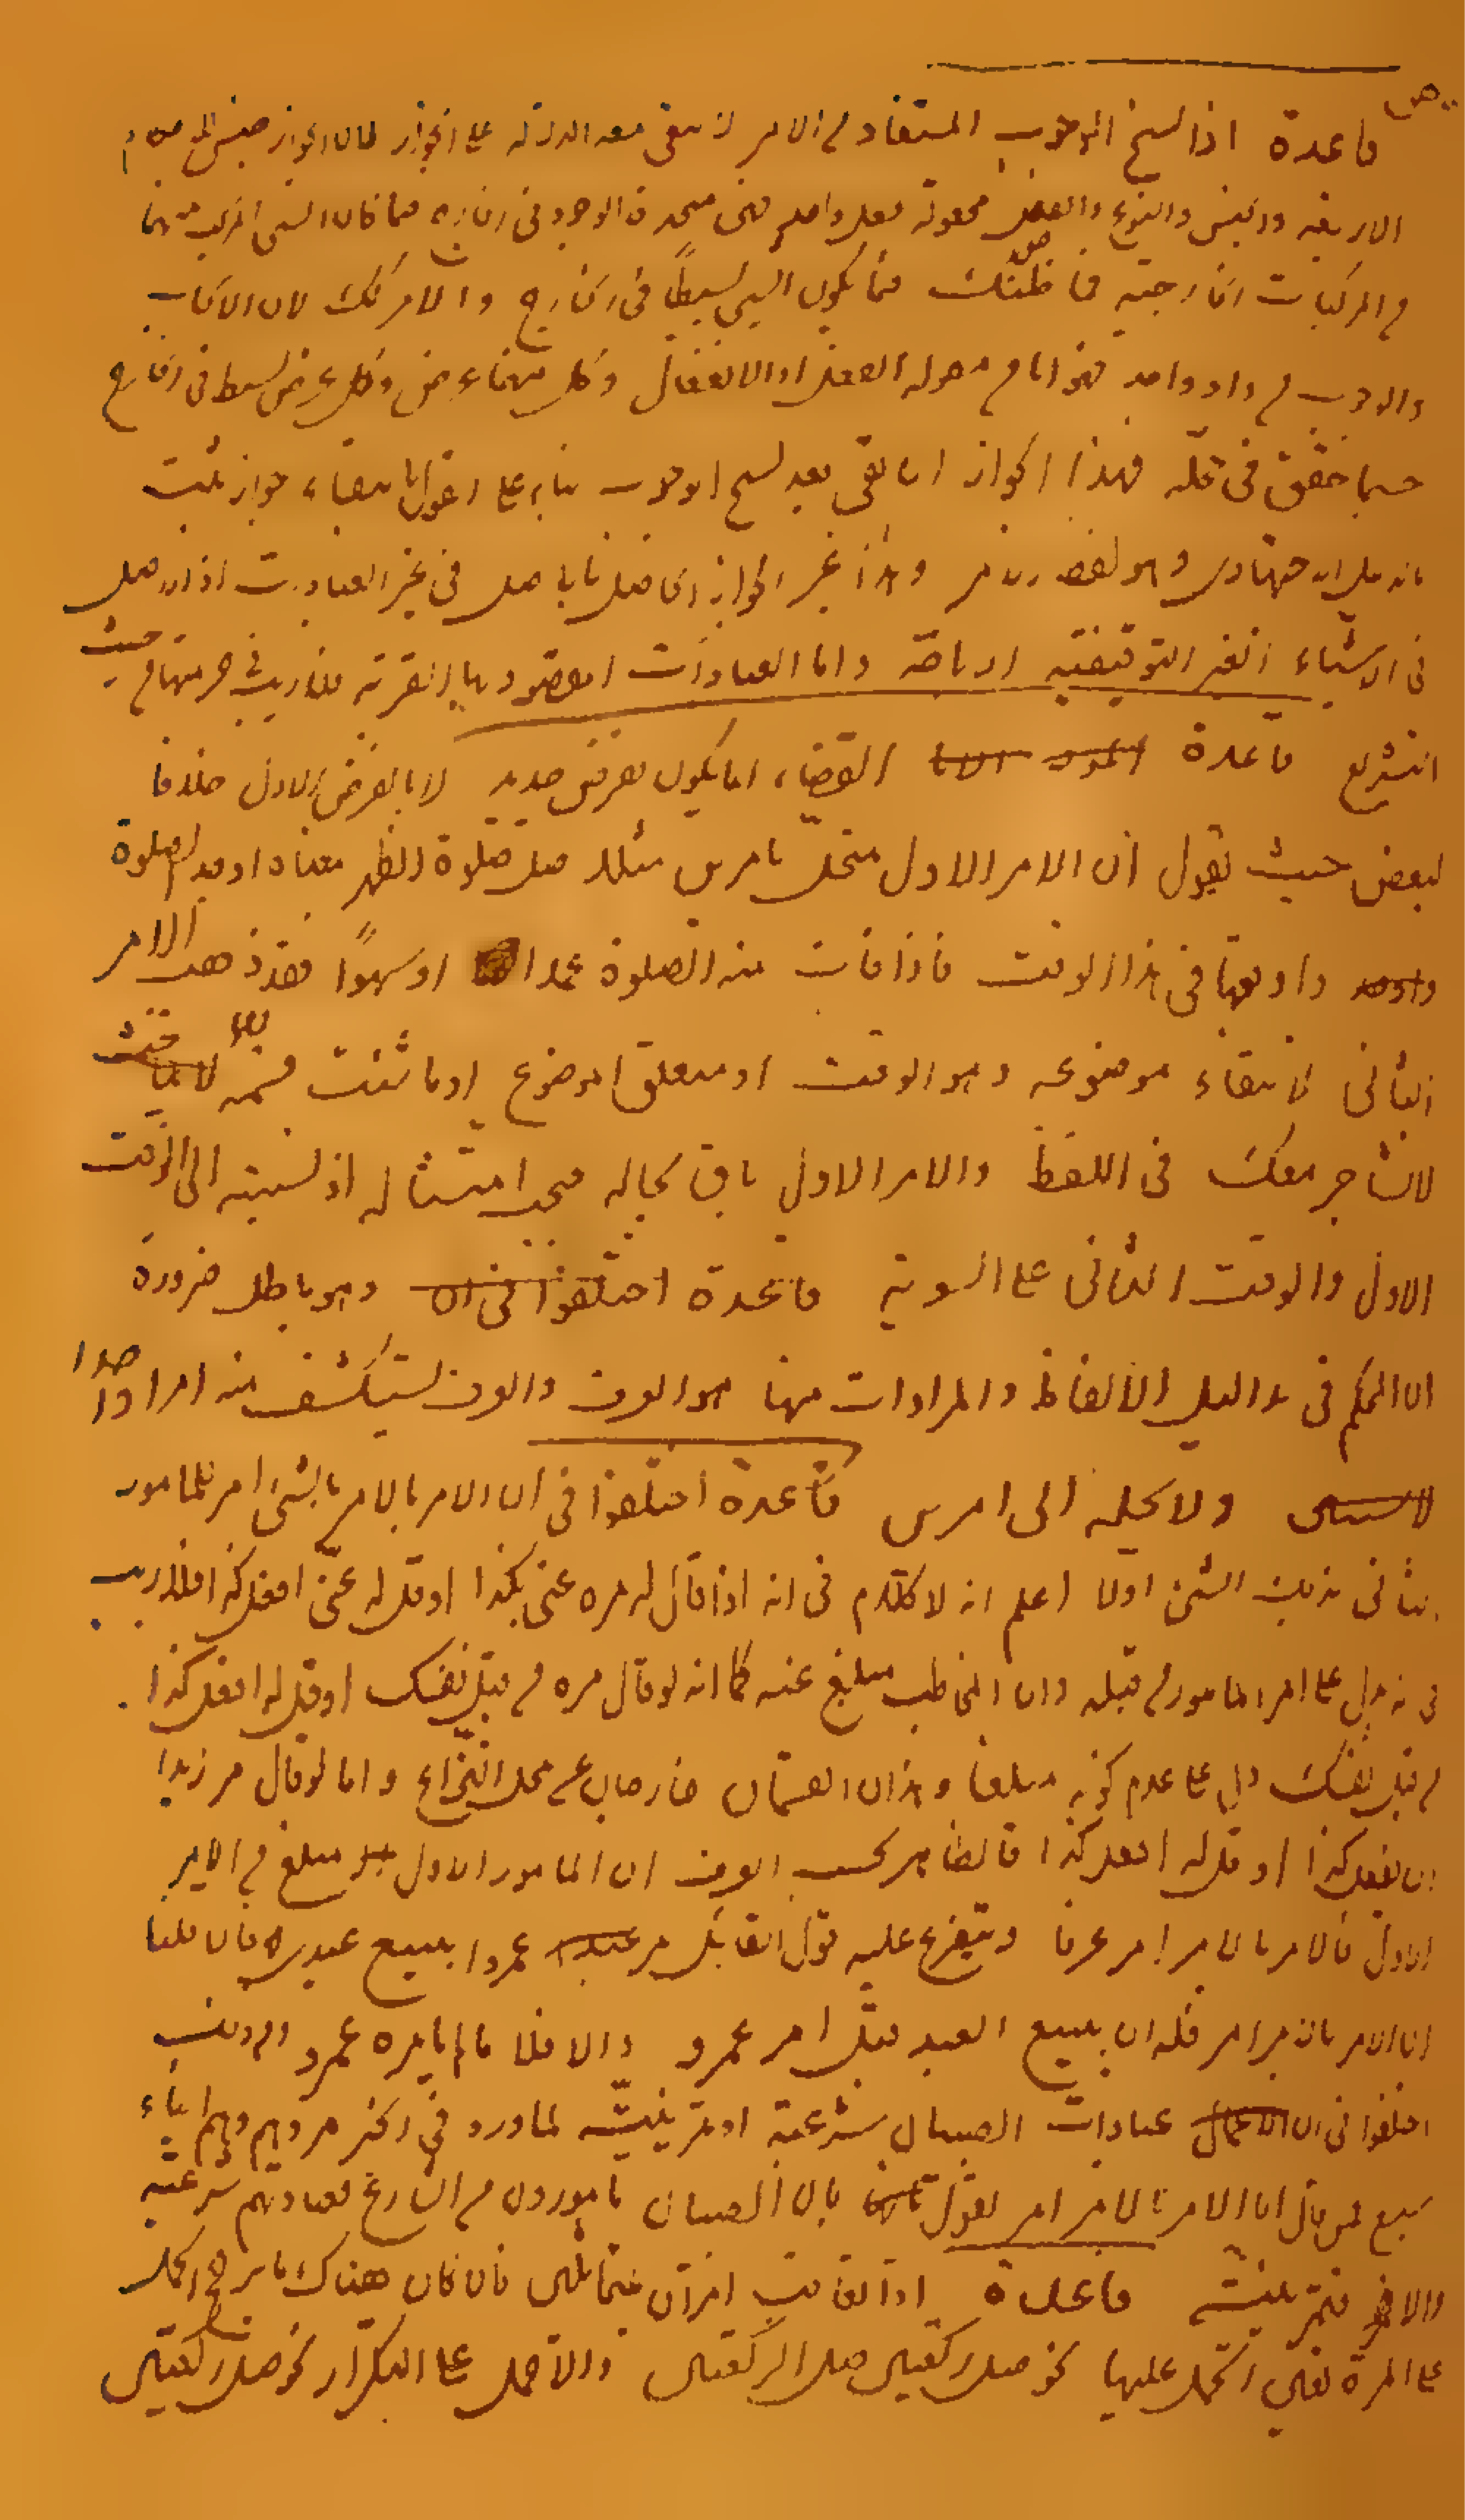 قاعدة اذا نسخ الوجوب المستفاد من الامر لا يبقى معه الدلالة على الجواز لان الجواز جنس
الاربعة والجنس والنوع والفصل مجعولة بجعل واحد فهى متحدة الوجود فى الخارج فما كان الشى المركب منها
من المركبات الخارجية فما ظنك فيما يكون الشى بسيطًا فى الخارج والامر كك لان الايجاب
والوجوب من واد واحد فهو اما من مقولة الفعل او الانفعال وكل منهما عرض وكل عرض بسيط فى الخارج
حسبما حقق فى محله فهذا الجواز ان بقى بعد نسخ الوجوب بناء على القول ببقاء جواز يثبت
بالدليل الاجتهادى وهو لفظ الامر وهذا غير الجواز الحاصل بالاصل فى غير العبادات اذ الاصل
فى الاشياء الغير التوقيفية الاباحة واما العبادات المقصود بها القربة فلا ريب فى حرمتها من حيث
التشريع قاعدة القضاء انما يكون بفرض جديد لا بالفرض الاول خلافا
لبعض حيث يقول ان الامر الاول منحل بامرين مثلا صل صلوة الظهر معناه اوقع الصلوة
واوقعها فى هذا الوقت فاذا فات منه الصلوة عمدا او سهوًا فقد ذهب الامر
الثانى لانتفاء موضوعه وهو الوقت او متعلق الموضوع او ما شئت فسمه
لا نشاجر معك فى اللفظ والامر الاول باق بحاله فيجب امتثاله اذ نسبته الى الوقت
الاول والوقت الثانى على السوية قاعدة اختلفوا فى ان وهو باطل ضرورة
ان الحكم فى مداليل الالفاظ والمرادات منها هو العرف والعرف يستكشف منه امرا واحدا
ولا يحله الى امرين قاعدة اختلفوا فى ان الامر بالامر بالشئ امر للمامور
الثانى بذلك الشئ اولا اعلم انه لا كلام فى انه اذا قال له مره عنى بكذا او قل له عنى افعل كذا فلا ريب
فى انه يدل على امر المامور من قبله وان المخاطب مبلغ عنه كما انه لو قال مره من قبل نفسك او قل له افعل كذا
من قبل نفسك دل على عدم كونه مبلغا وهذان القسمان خارجان عن محل النزاع واما لو قال مر زيدا
ان يفعل كذا او قل له افعل كذا فالظاهر بحسب العرف ان المامور الاول مبلغ من الامر
الاول فالامر بالامر امر عرفا ويتفرع عليه قول القائل مر عمروا ببيع عبدى فان قلنا
ان الامر بالامر امر فله ان يبيع العبد قبل امر عمرو والا فلا ما لم يامره عمرو
اختلفوا فى ان عبادات الصبيان شرعية او تمرينية لما ورد فى اكثر مروهم وهم ابناء
سبع فمن قال ان الامر بالامر امر يقول بان الصبيان مامورون من الشارع فعبادتهم شرعية
والا فتمرينية قاعدة اذا تعاقب امران متماثلين فان كان هناك ما يرجح الحمل
على المرة تعين الحمل عليها نحو صل ركعتين صل الركعتين والا حمل على التكرار نحو صل ركعتين